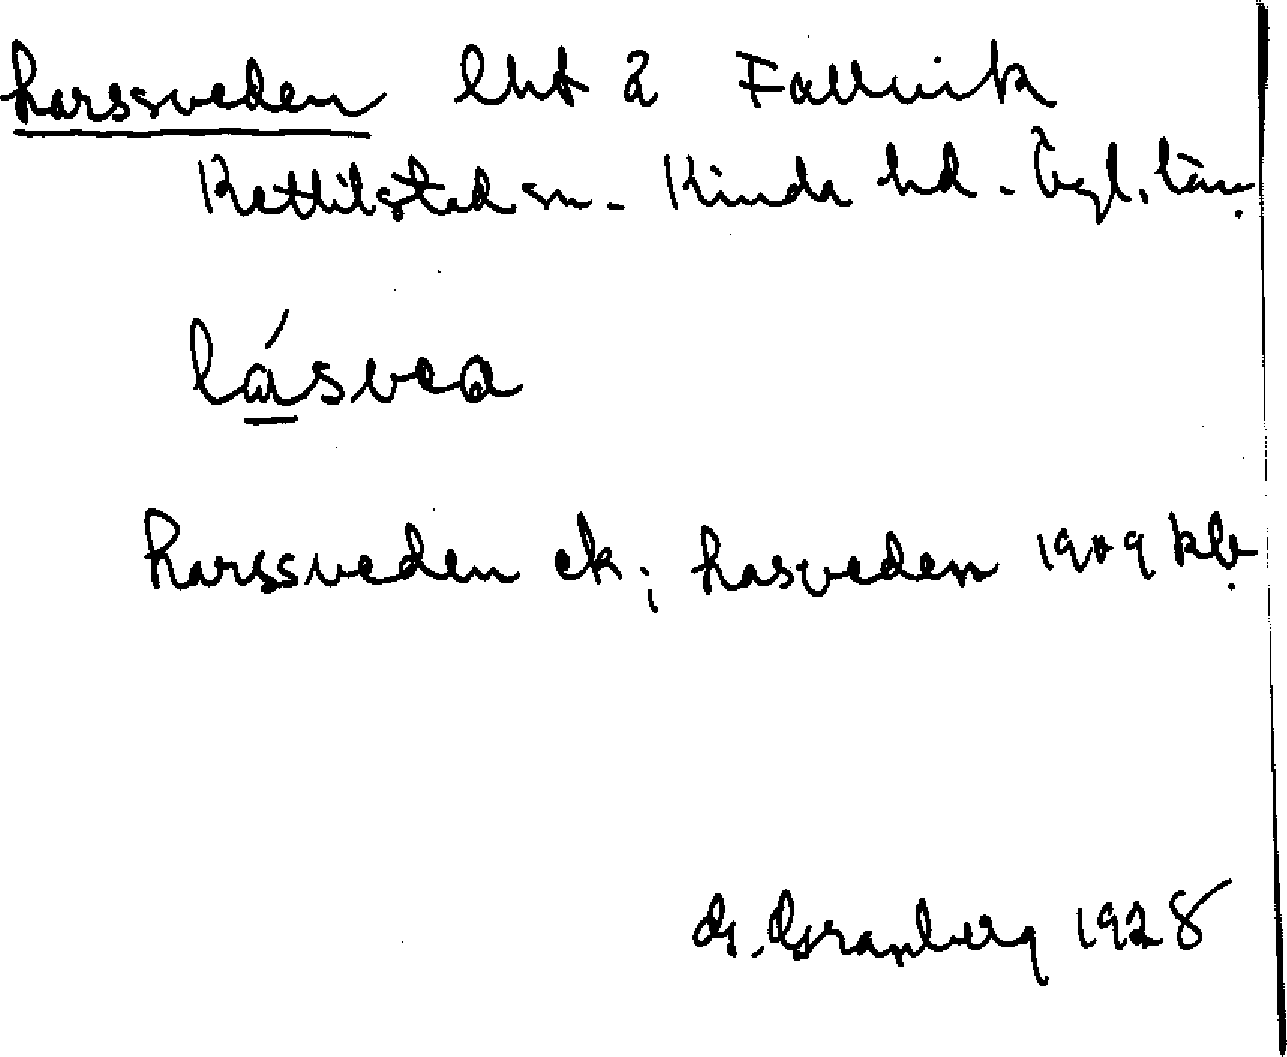 Larssveden lht å Fallvik
Kättilstad sn. Kinda hd. Ögl. län.
lásvea
Larssveden ek; Lasveden 1909 kb.
G. Granberg 1928